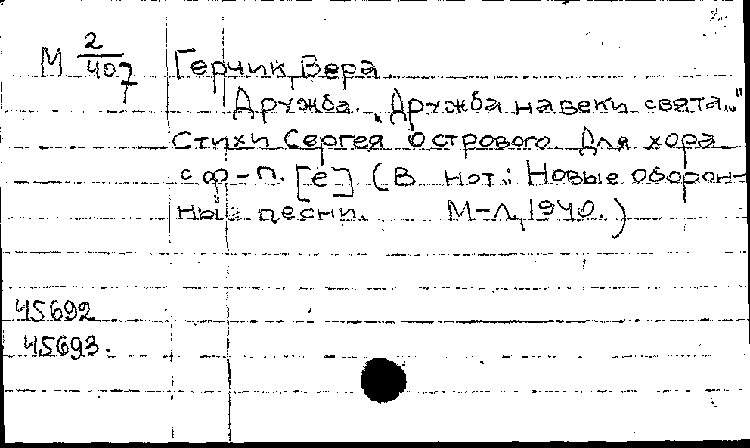 М 2/407 Герчик, Вера
Дружба. "Дружба навеки свята..."
Стихи Сергея Острового. Для хора
с ф-п. [e] (В нот.: Новые оборон-
ные песни. М-Л, 1940.)
45692
45693.